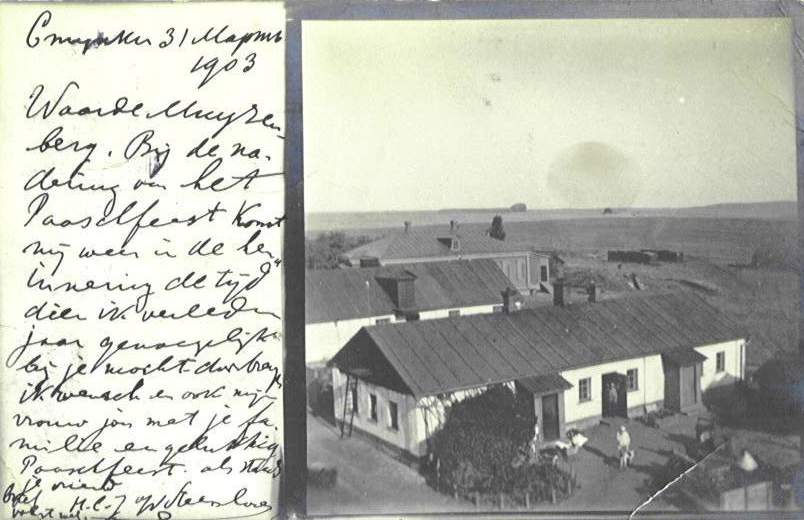 Ступки 31 Мартъ
1903
Waarde Muyzen
berg. Bij de na-
dering van het
Paaschfeest komt
mij weer in de her
innering de tijd
dien ik verleden
jaar genoegelijk
bij je mocht doorbrengen
ik wensch en ook mijn
vrouw jou met je fa
milie en gelukkig
Paaschfeest. als steeds
je vriend
H.C.J.